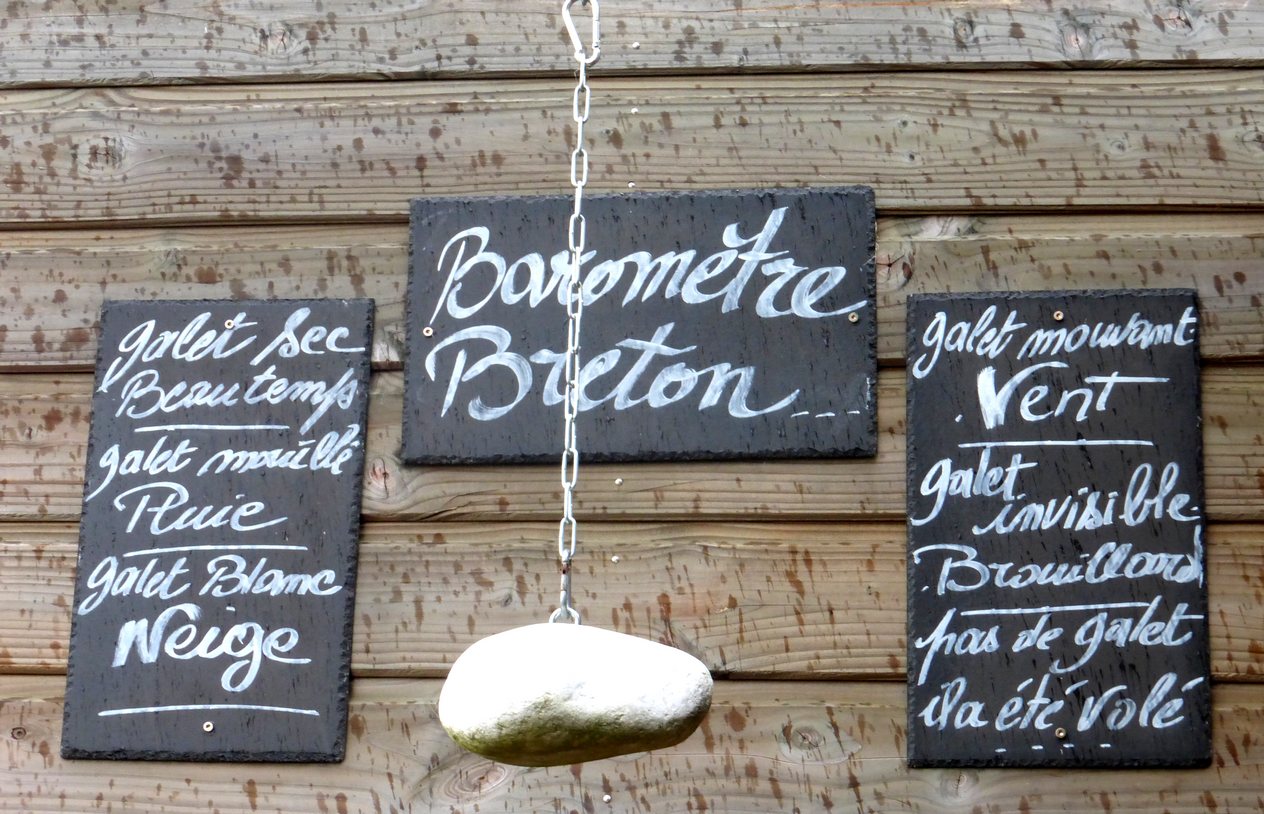 Baromètre
Breton...
galet sec
Beau temps
galet mouillé
Pluie
galet Blanc
Neige
galet mouvant.
Vent
galet
invisible.
Brouillard
pas de galet
il a été volé